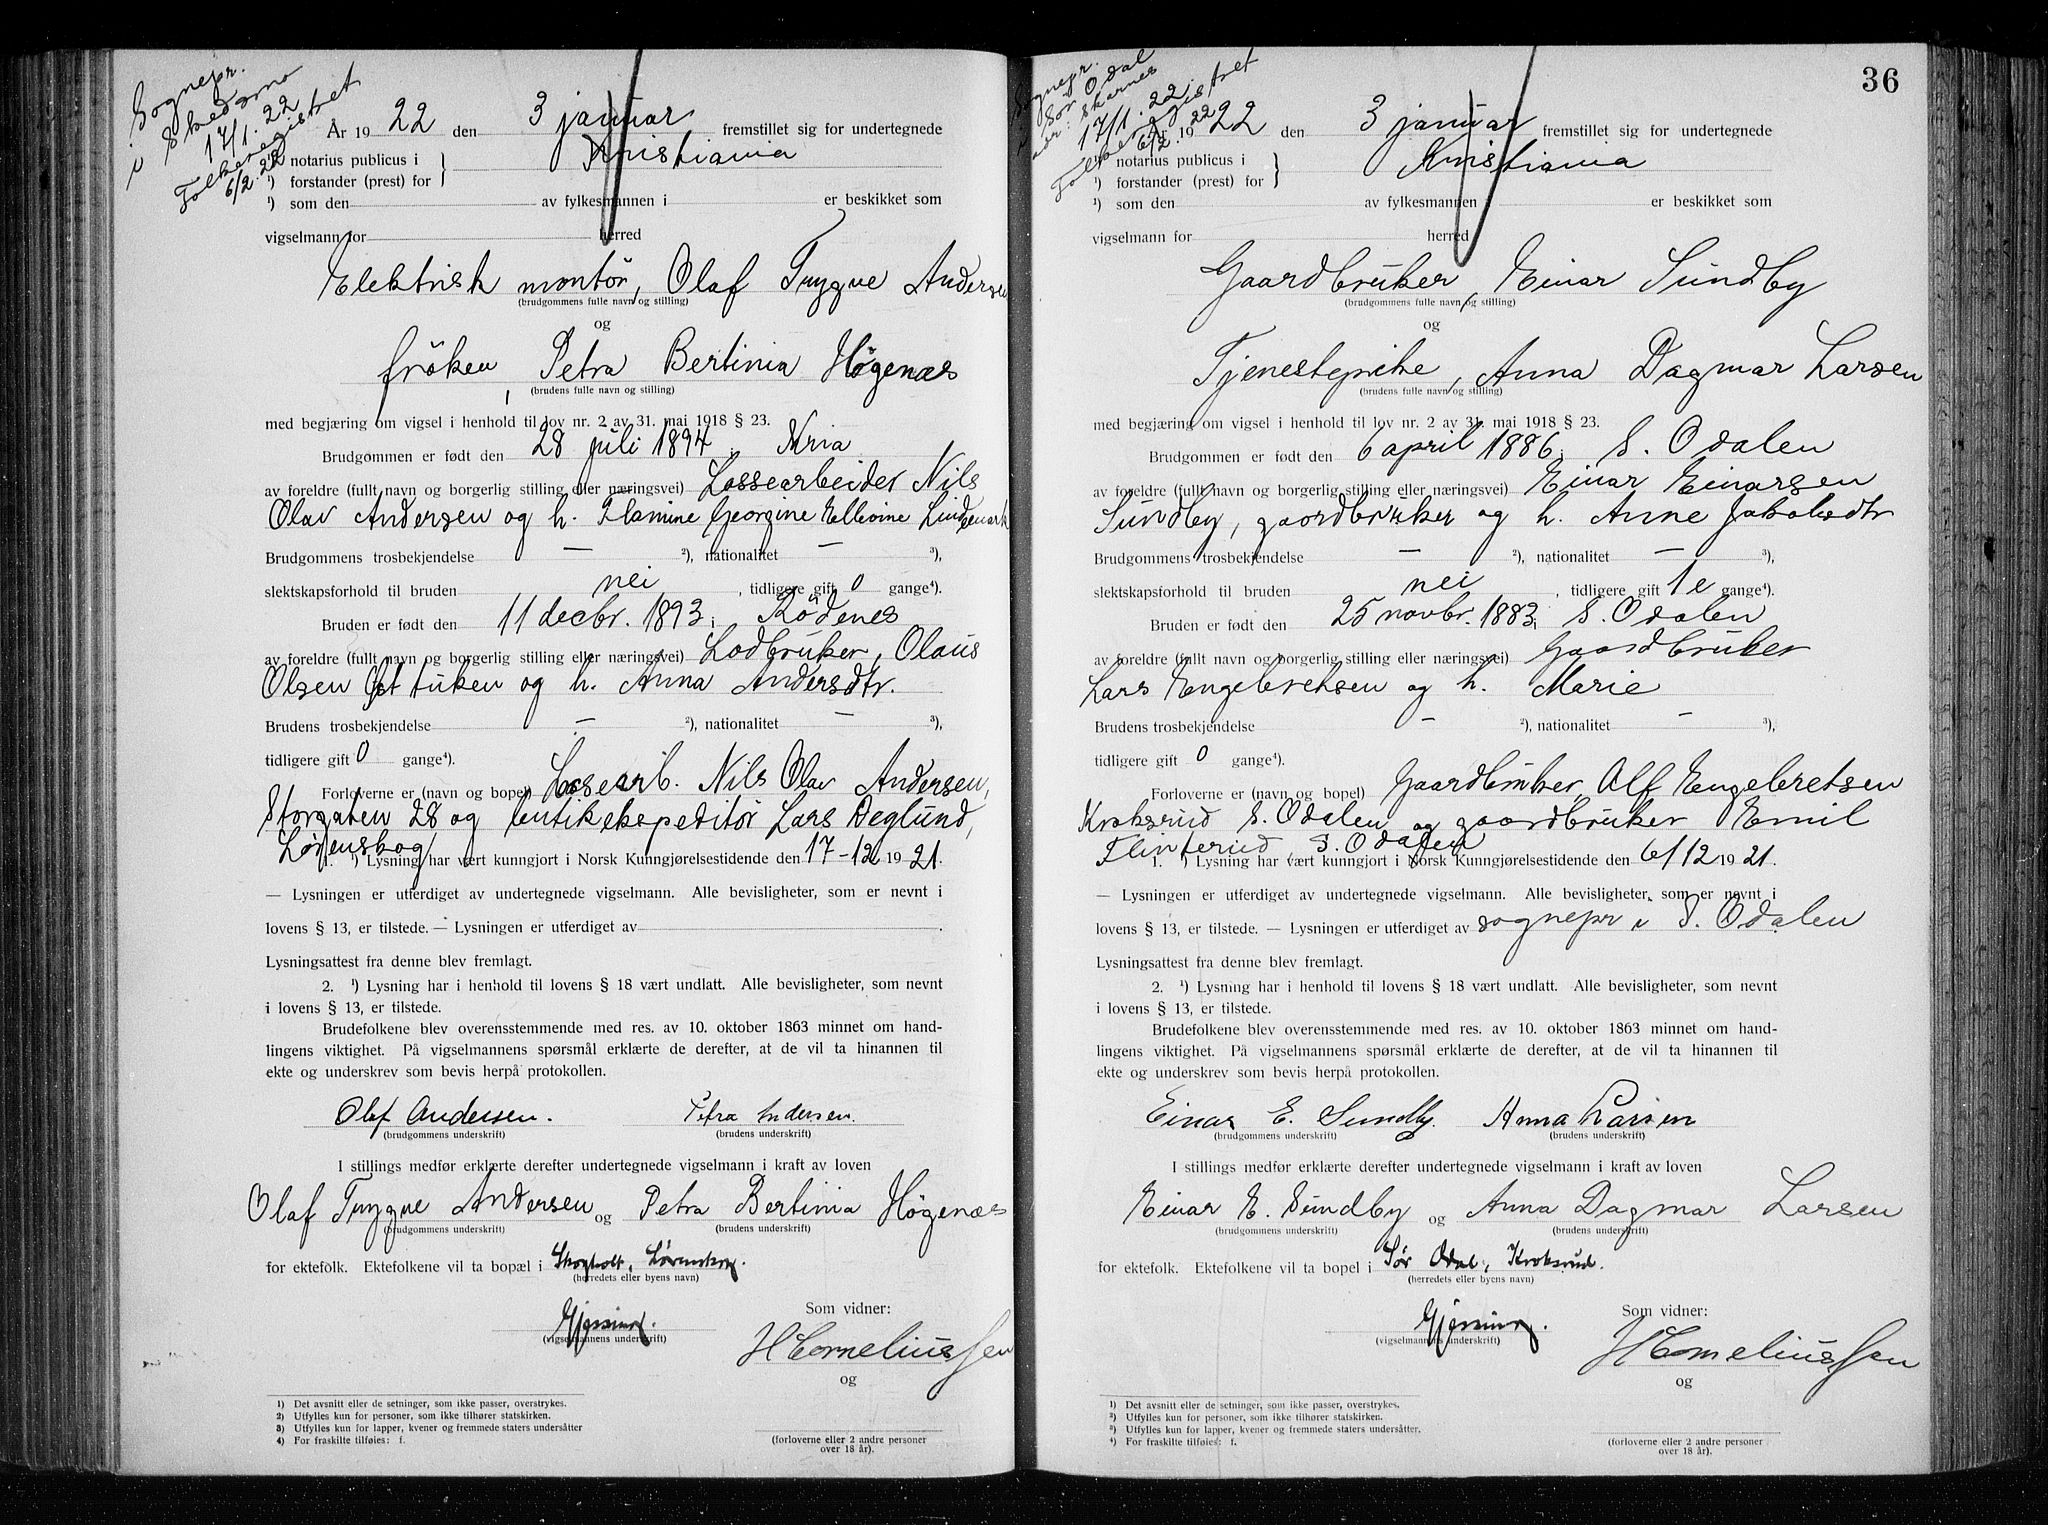 Sognepr.
i Skedsmo
17/1. 22
Folkeregistret
6/2. 22
År 1922 den 3 januar fremstillet sig for undertegnede
¹) notarius publicus i } Kristiania
¹) forstander (prest) for
¹) som den av fylkesmannen i er beskikket som
vigselmann for herred
Elektrisk montör, Olaf Trygve Andersen
(brudgommens fulle navn og stilling)
og
fröken, Petra Bertinia Høgenæs
(brudens fulle navn og stilling)
med begjæring om vigsel i henhold til lov nr. 2 av 31. mai 1918 § 23.
Brudgommen er født den 28 juli 1894, Kria
av foreldre (fullt navn og borgerlig stilling eller næringsvei) Lossearbeider Nils
Olav Andersen og h. Flamine Georgine Ellevine Lindemark
Brudgommens trosbekjendelse — ²), nationalitet — ³),
slektskapsforhold til bruden nei, tidligere gift 0 gange⁴).
Bruden er født den 11 decbr. 1893, Rödenes
av foreldre (fullt navn og borgerlig stilling eller næringsvei) Lodbruker, Olaus
Olsen tuken og h. Anna Andersdtr.
Brudens trosbekjendelse — ²), nationalitet — ³),
tidligere gift 0 gange⁴).
Forloverne er (navn og bopel) Lossearb. Nils Olav Andersen,
Storgaten 28 og butikekspeditör Lars Deglund,
Lørenskog
1. ¹) Lysning har vært kunngjort i Norsk Kunngjørelsestidende den 17-12 1921.
— Lysningen er utferdiget av undertegnede vigselmann. Alle bevisligheter, som er nevnt i
lovens § 13, er tilstede. — Lysningen er utferdiget av
Lysningsattest fra denne blev fremlagt.
2. ¹) Lysning har i henhold til lovens § 18 vært undlatt. Alle bevisligheter, som nevnt
i lovens § 13, er tilstede.
Brudefolkene blev overensstemmende med res. av 10. oktober 1863 minnet om hand-
lingens viktighet. På vigselmannens spørsmål erklærte de derefter, at de vil ta hinannen til
ekte og underskrev som bevis herpå protokollen.
Olaf Andersen. Petra Andersen.
(brudgommens underskrift) (brudens underskrift)
I stillings medfør erklærte derefter undertegnede vigselmann i kraft av loven
Olaf Trygve Andersen og Petra Bertinia Høgenæs
(brudgommens underskrift) (brudens underskrift)
for ektefolk. Ektefolkene vil ta bopæl i Skogholt, Lørenskog.
(herredets eller byens navn)
Gjessing.
(vigselmannens underskrift)
Som vidner:
H Corneliussen
og
(forloverne eller 2 andre personer
over 18 år).
1) Det avsnitt eller de setninger, som ikke passer, overstrykes.
2) Utfylles kun for personer, som ikke tilhører statskirken.
3) Utfylles kun for lapper, kvener og fremmede staters undersåtter
4) For fraskilte tilføies: f.
36
Sognepr.
i Sør Odal
adr: Skarnes
17/1. 22
Folkeregistret
6/2. 22
År 1922 den 3 januar fremstillet sig for undertegnede
¹) notarius publicus i } Kristiania
¹) forstander (prest) for
¹) som den av fylkesmannen i er beskikket som
vigselmann for herred
Gaardbruker, Einar Sundby
(brudgommens fulle navn og stilling)
og
Tjenestepike, Anna Dagmar Larsen
(brudens fulle navn og stilling)
med begjæring om vigsel i henhold til lov nr. 2 av 31. mai 1918 § 23.
Brudgommen er født den 6 april 1886, S. Odalen
av foreldre (fullt navn og borgerlig stilling eller næringsvei) Einar Einarsen
Sundby, gaardbruker og h. Anne Jakobsdtr
Brudgommens trosbekjendelse — ²), nationalitet — ³),
slektskapsforhold til bruden nei, tidligere gift 1 e gange⁴).
Bruden er født den 25 novbr. 1883, S. Odalen
av foreldre (fullt navn og borgerlig stilling eller næringsvei) Gaardbruker
Lars Engebretsen og h. Marie
Brudens trosbekjendelse — ²), nationalitet — ³),
tidligere gift 0 gange⁴).
Forloverne er (navn og bopel) Gaardbruker Alf Engebretsen
Kroksrud S. Odalen og gaardbruker Emil
Flinterud, S. Odalen
1. ¹) Lysning har vært kunngjort i Norsk Kunngjørelsestidende den 6/12 1921.
— Lysningen er utferdiget av undertegnede vigselmann. Alle bevisligheter, som er nevnt i
lovens § 13, er tilstede. — Lysningen er utferdiget av sognepr i S. Odalen
Lysningsattest fra denne blev fremlagt.
2. ¹) Lysning har i henhold til lovens § 18 vært undlatt. Alle bevisligheter, som nevnt
i lovens § 13, er tilstede.
Brudefolkene blev overensstemmende med res. av 10. oktober 1863 minnet om hand-
lingens viktighet. På vigselmannens spørsmål erklærte de derefter, at de vil ta hinannen til
ekte og underskrev som bevis herpå protokollen.
Einar E. Sundby. Anna Larsen
(brudgommens underskrift) (brudens underskrift)
I stillings medfør erklærte derefter undertegnede vigselmann i kraft av loven
Einar E. Sundby og Anna Dagmar Larsen
(brudgommens underskrift) (brudens underskrift)
for ektefolk. Ektefolkene vil ta bopel i Sør Odal, Kroksrud.
(herredets eller byens navn)
Gjessing.
(vigselmannens underskrift)
Som vidner:
H Corneliussen
og
(forloverne eller 2 andre personer
over 18 år).
1) Det avsnitt eller de setninger, som ikke passer, overstrykes.
2) Utfylles kun for personer, som ikke tilhører statskirken.
3) Utfylles kun for lapper, kvener og fremmede staters undersåtter.
4) For fraskilte tilføies: f.